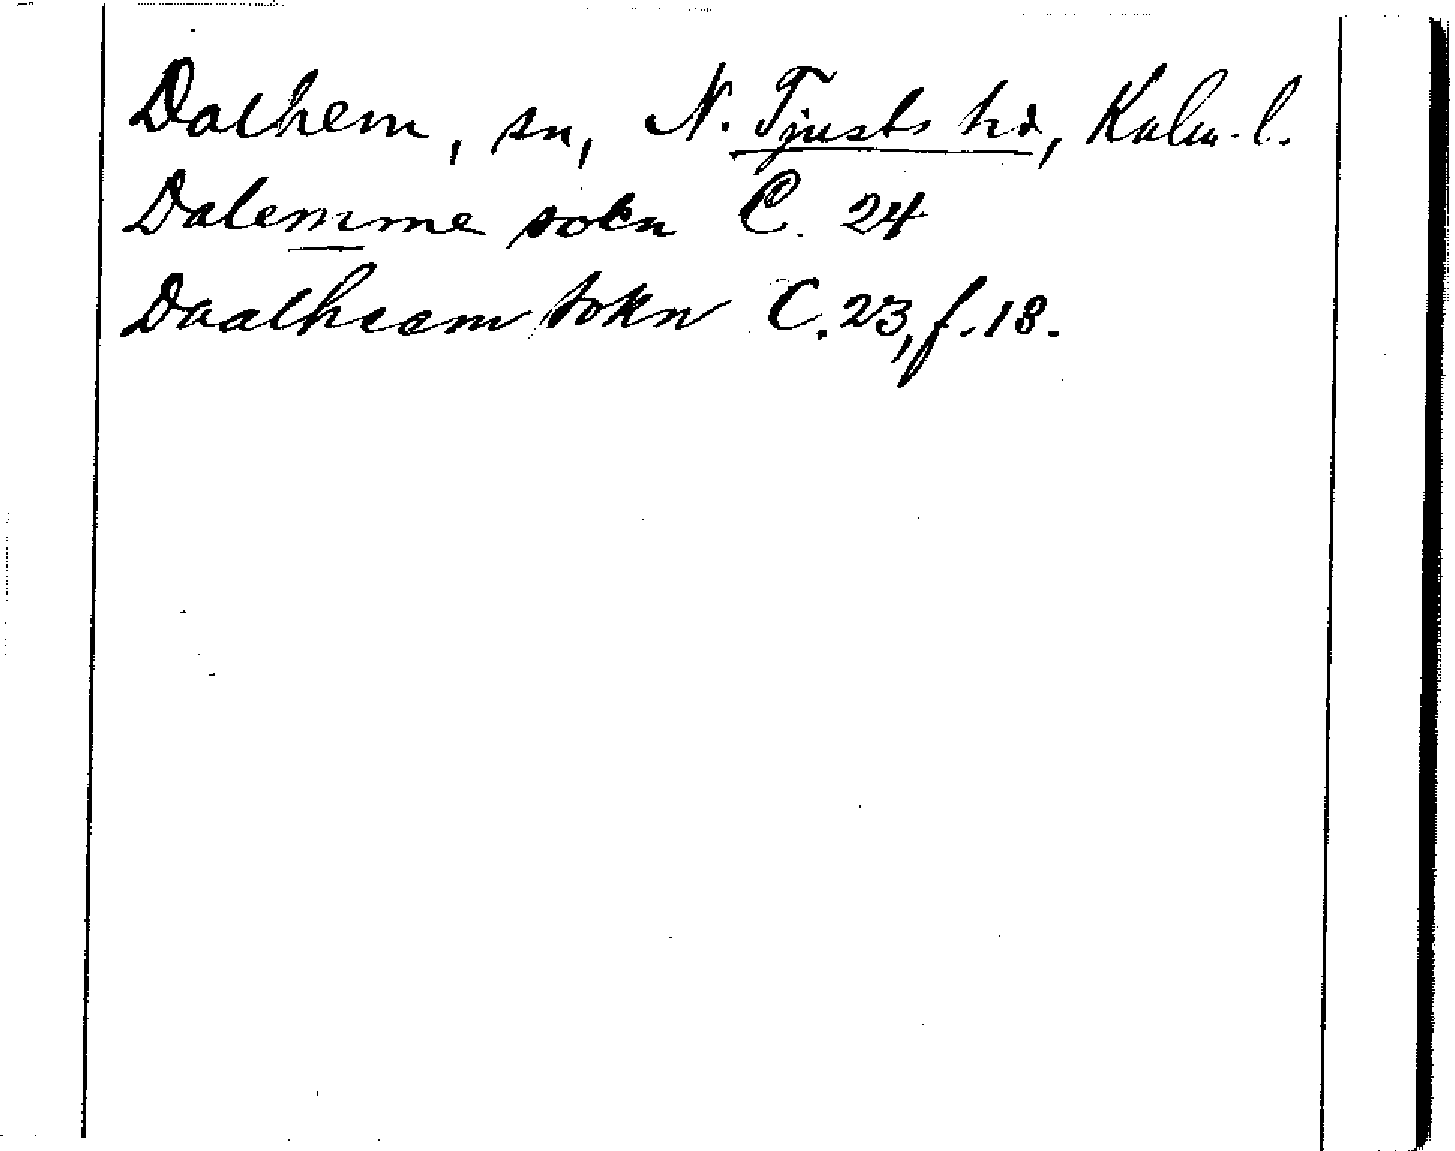 Dalhem, sn, N. Tjusts hd, Kalm. l.
Dalemme sokn C. 24
Daalheem sokn C. 23, f. 18.